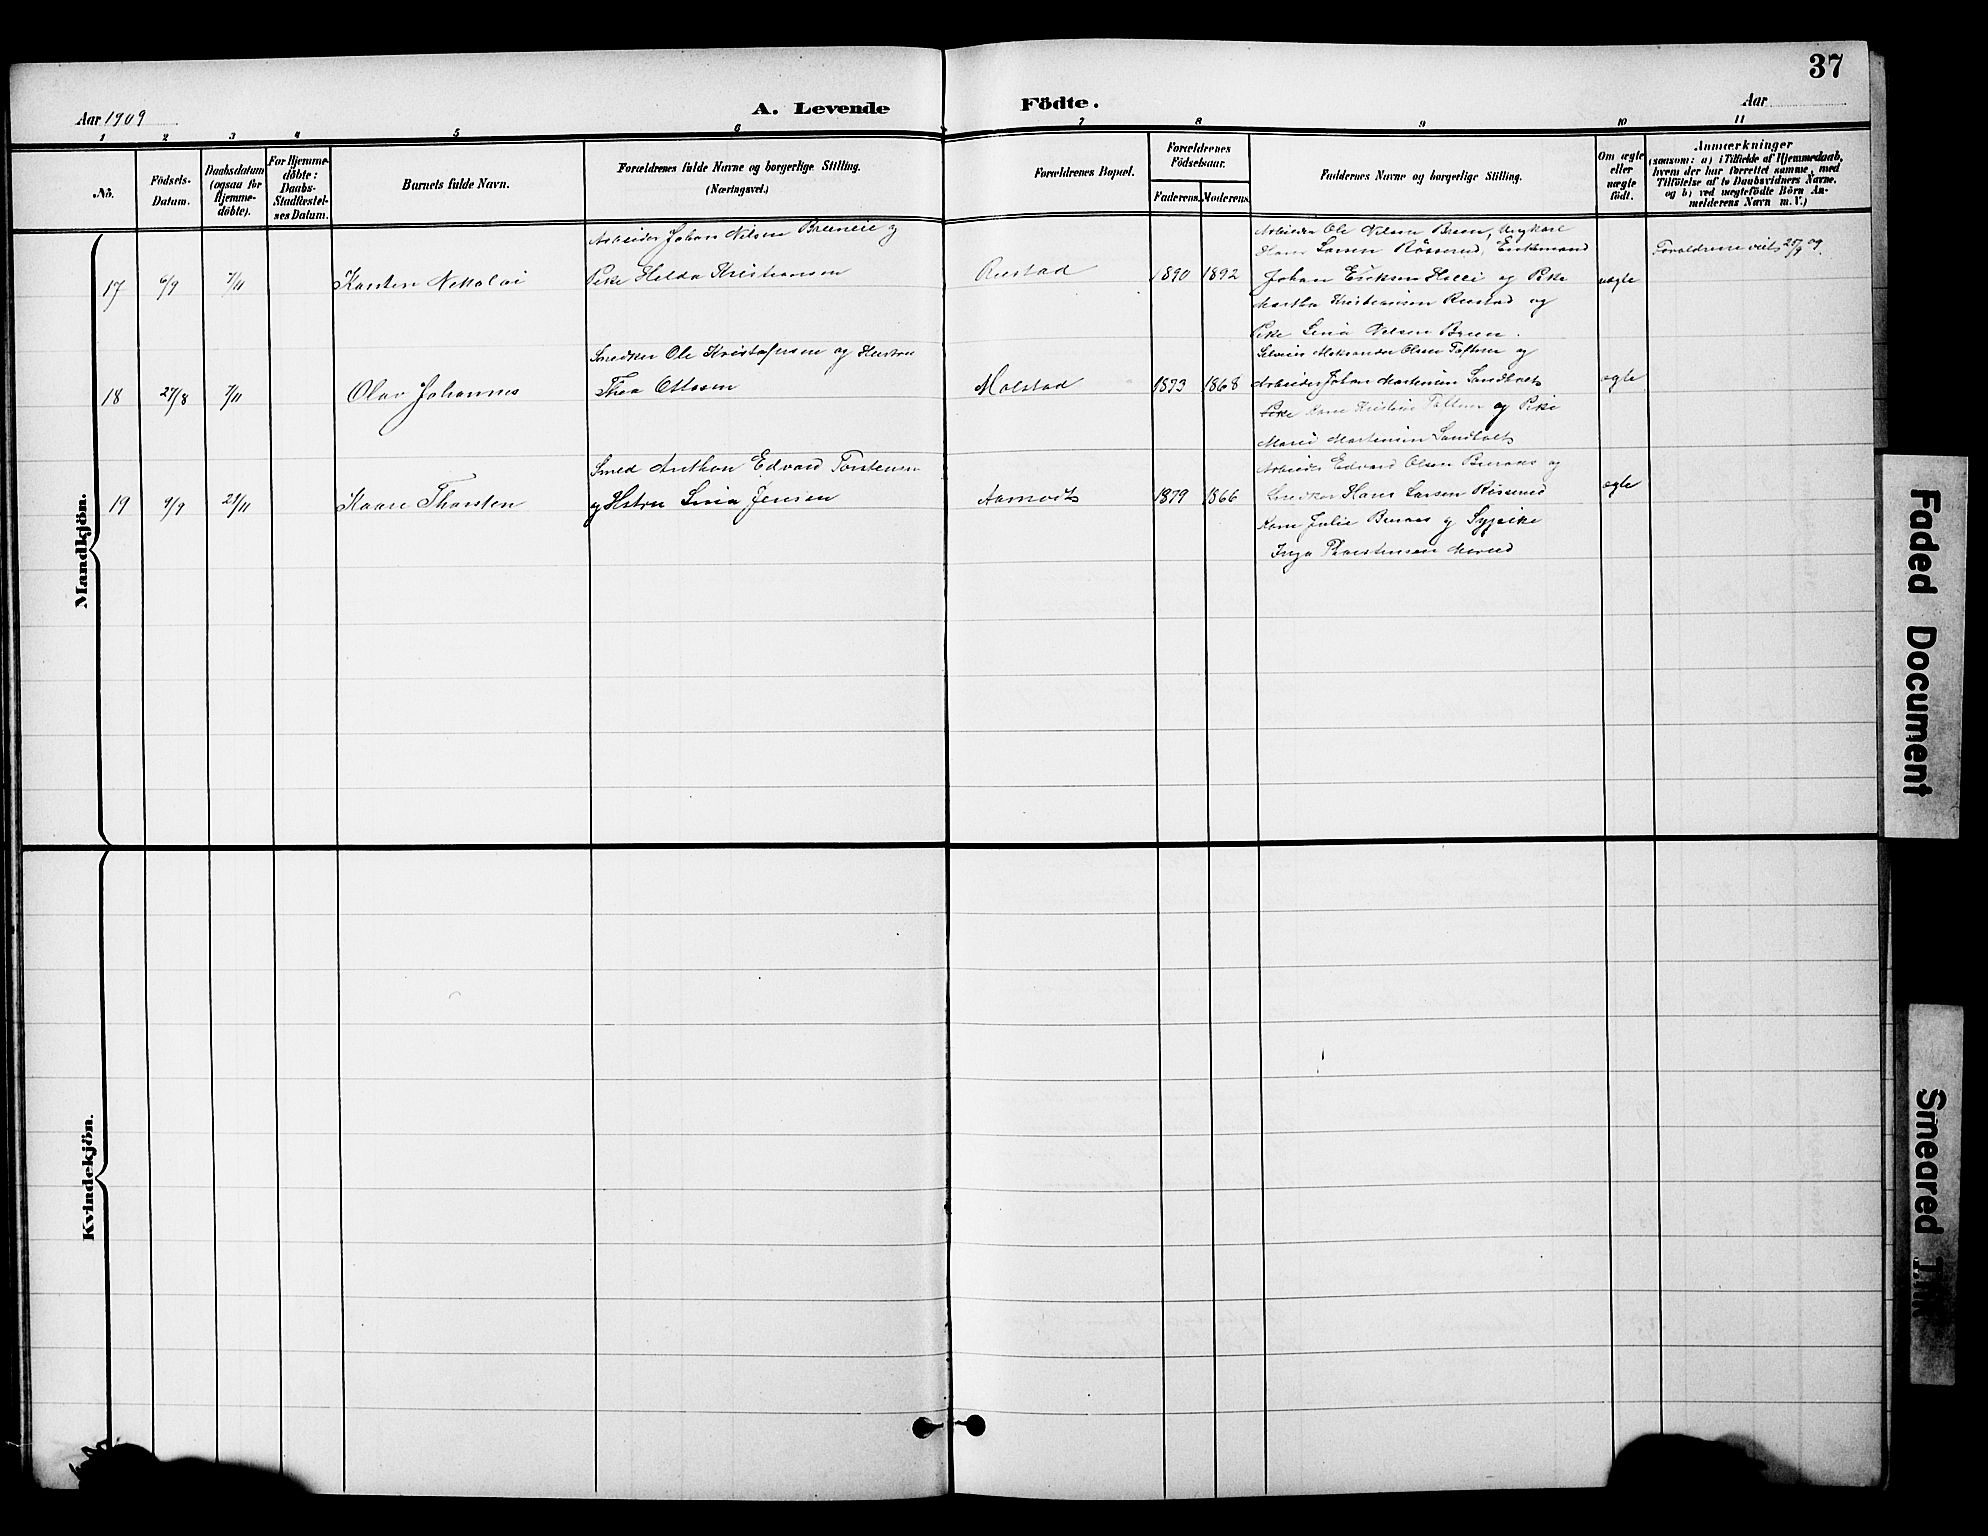 37
Aar 1909
A. Levende Födte.
Aar
1 2 3 4 5 6 7 8 9 10 11
No.
Födsels-
Datum.
Daabsdatum
(ogsaa for
Hjemme-
döbte).
For Hjemme-
döbte:
Daabs-
Stadfæstel-
ses Datum.
Barnets fulde Navn.
Forældrenes fulde Navne og borgerlige Stilling.
(Næringsvei.)
Forældrenes Bopæl.
Forældrenes
Födselsaar.
Faderens.
Moderens.
Faddernes Navne og borgerlige Stilling.
Om ægte
eller
uægte
født.
Anmærkninger
(saasom: a) i Tilfælde af Hjemmedaab,
hvem der har forrettet samme, med
Tilföielse af to Daabsvidners Navne,
og b) ved uægtefödte Börn An-
melderens Navn m. V.)
Mandkjön.
17
6/9
7/11
Karsten Nikolai
Arbeider Johan Nilsen Breneie og
Pike Helda Kristiansen
Rustad
1890
1892
Arbeider Ole Nilsen Breen, Ungkarl
Hans Larsen Røsserud, Enkemand
Johan Eriksen og Pike
Martha Kristiansen Rustad og
Pike Lina Nilsen Breen.
uægte
Forældrene viet 25/9 09.
18
27/8
7/11
Olav Johannes
Snedker Ole Kristofersen og Hustru
Thea Ottesen
Molstad
1873
1868
Aleksander Olsen Toftern og
Arbeider Johan Martinsen Sandholt
Pike Kone Kristine Toftern og Pike
Marie Martinsen Sandholt
ægte
19
9/9
21/11
Kaare Thorsten
Smed Anthon Edvard Torstensen
og Hstru Lina Jensen
Aamodt
1879
1866
Arbeider Edvard Olsen og
Snedker Hans Larsen Røsserud
Kone Julie og Sypike
Inga Thorstensen
ægte
Kvindekjön.
Faded Document
Smeared Ink